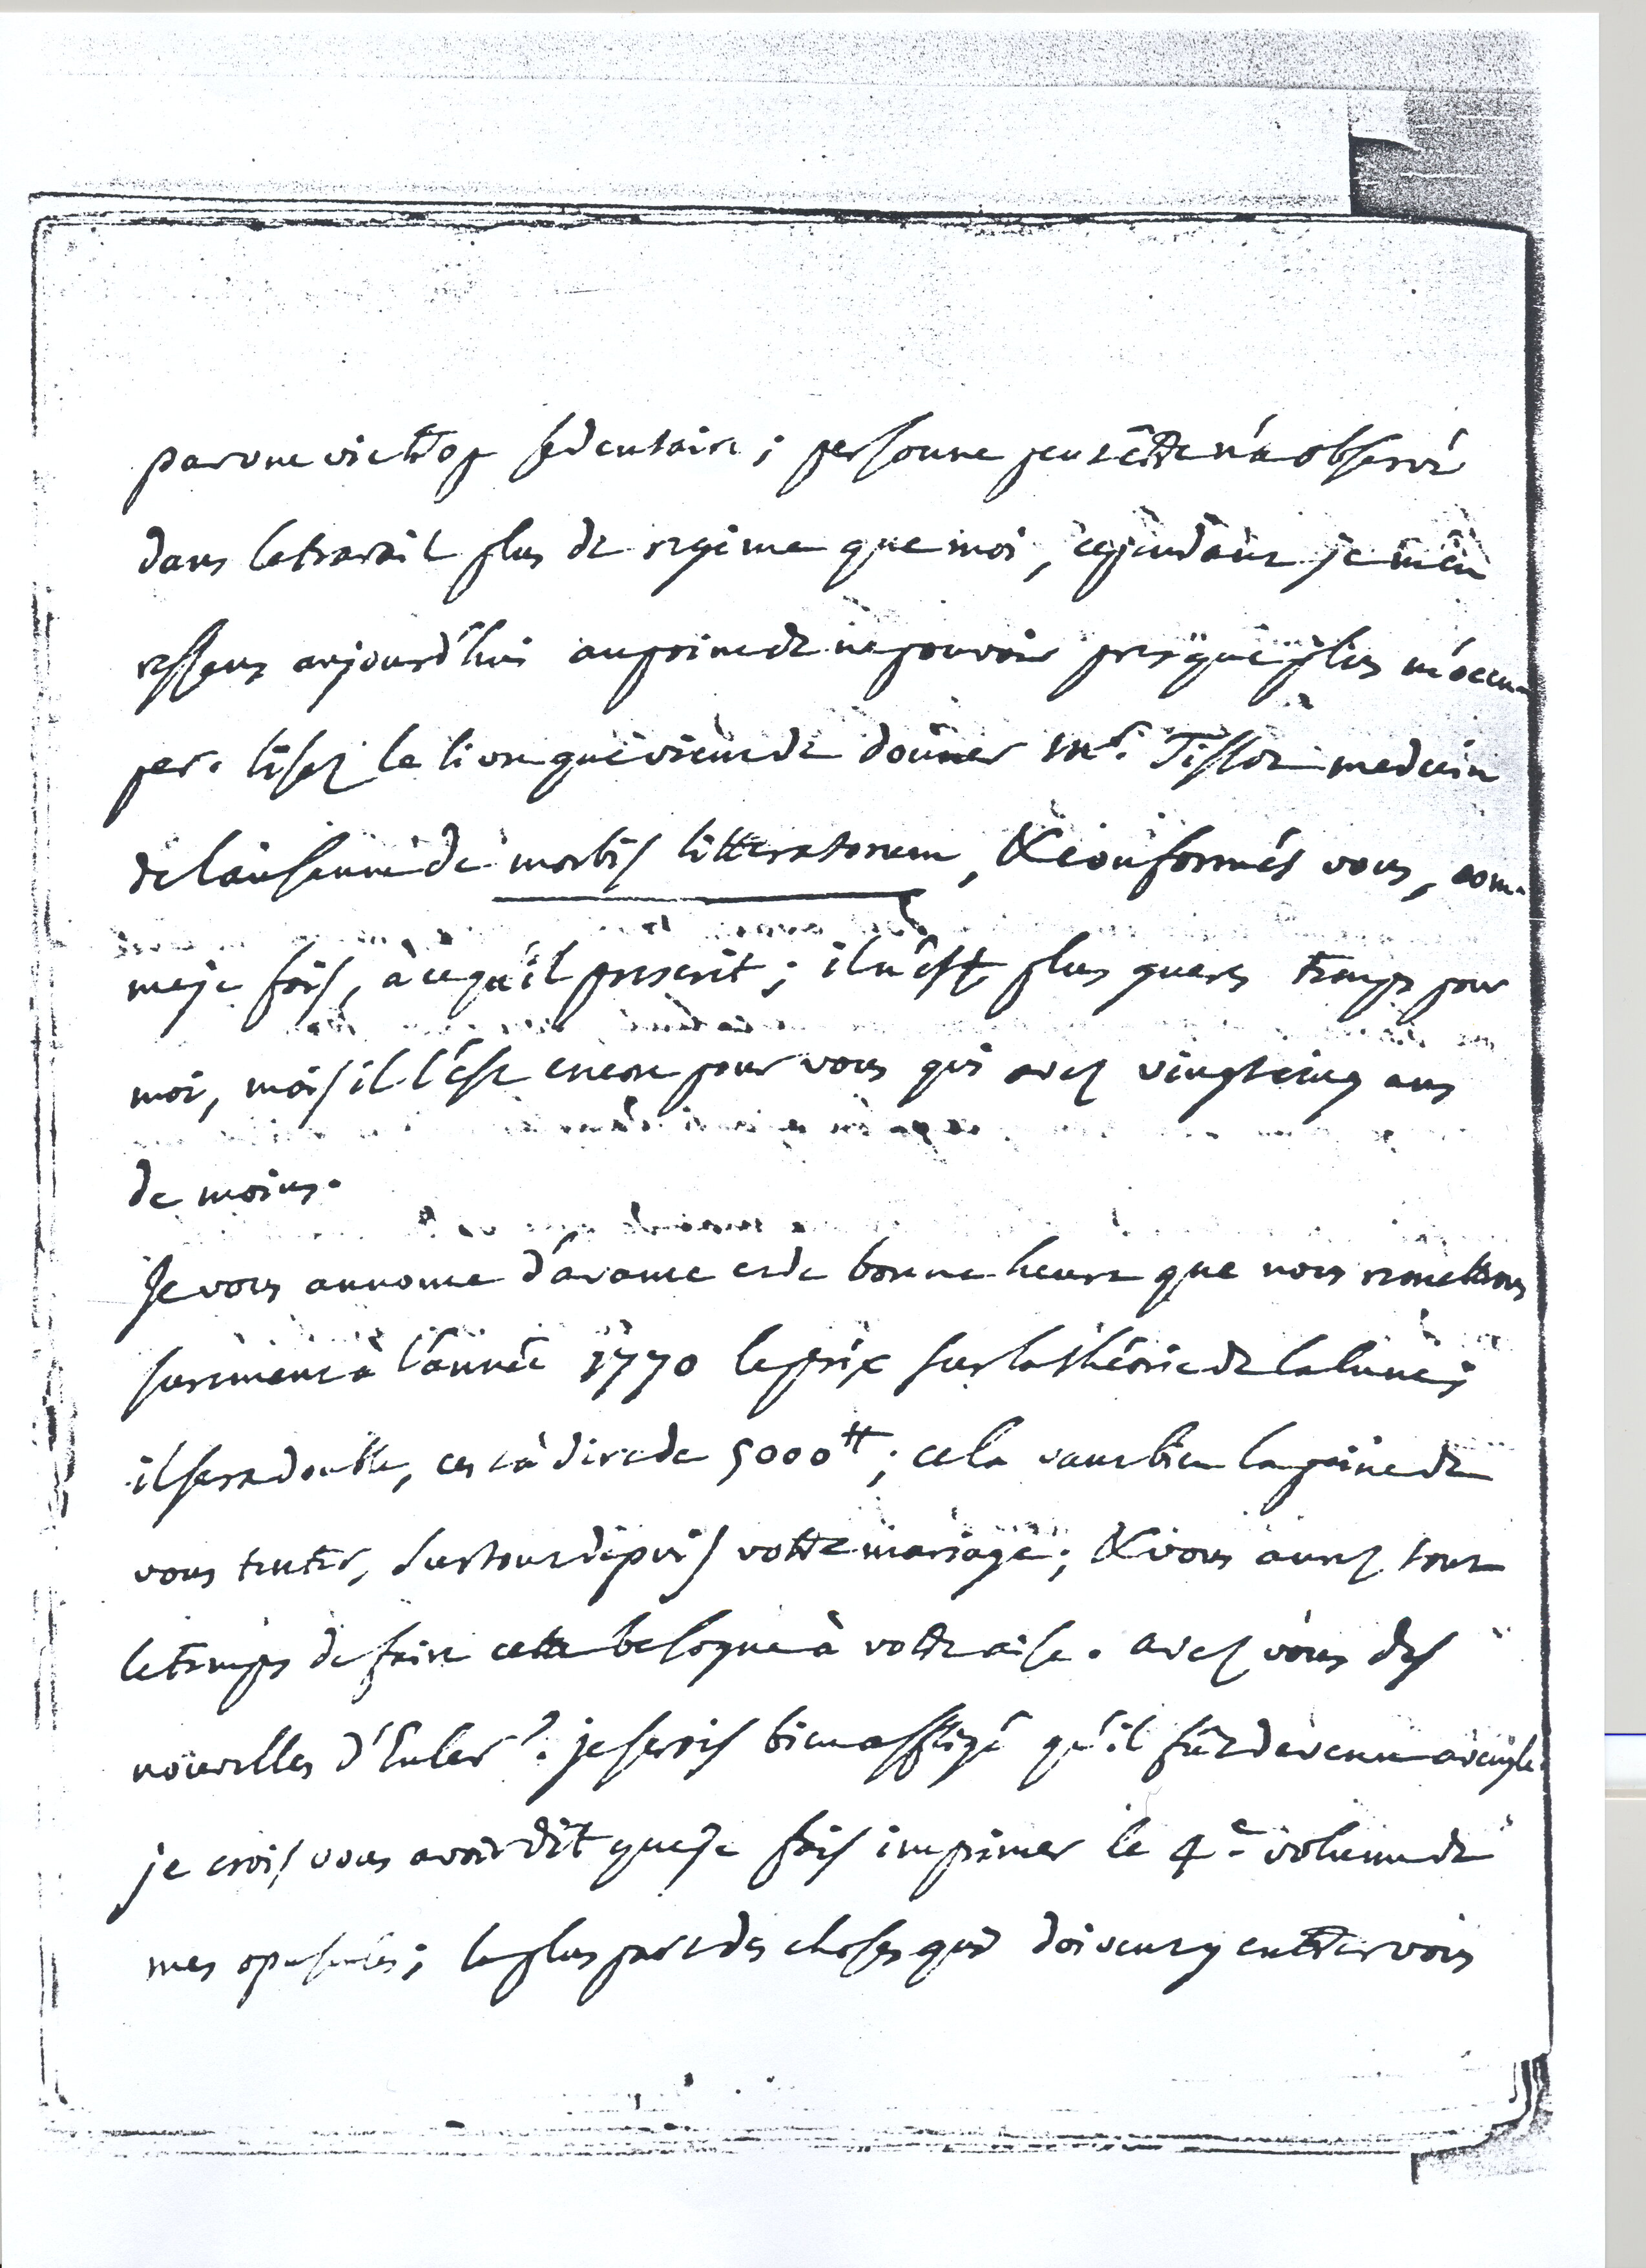 par une vie trop sedentaire ; personne peut être n'a observé
dans le travail plus de regime que moi, cependant je m'en
ressens aujourd'hui au point de ne pouvoir presque plus m'occu-
per. lisez le livre que vient de donner Mr. Tissot medecin
de lausanne de morbis litteratorum, & conformés vous, com-
me je fais, à ce qu'il prescrit ; il n'est plus gueres temps pour
moi, mais il l'est encore pour vous qui avez vingt cinq ans
de moins.
Je vous annonce d'avance et de bonne heure que nous remettrons
surement à l'année 1770 le prix sur la théorie de la lune ;
il sera double, c'est à dire de 5000 ₶ ; cela vaut bien la peine de
vous tenter, surtout depuis votre mariage ; & vous aurez tout
le temps de faire cette besogne à votre aise. avez vous des
nouvelles d'Euler ? je serois bien affligé qu'il fût devenu aveugle.
je crois vous avoir dit que je fais imprimer le 4e. volume de
mes opuscules ; la plus part des choses qui doivent y entrer vous